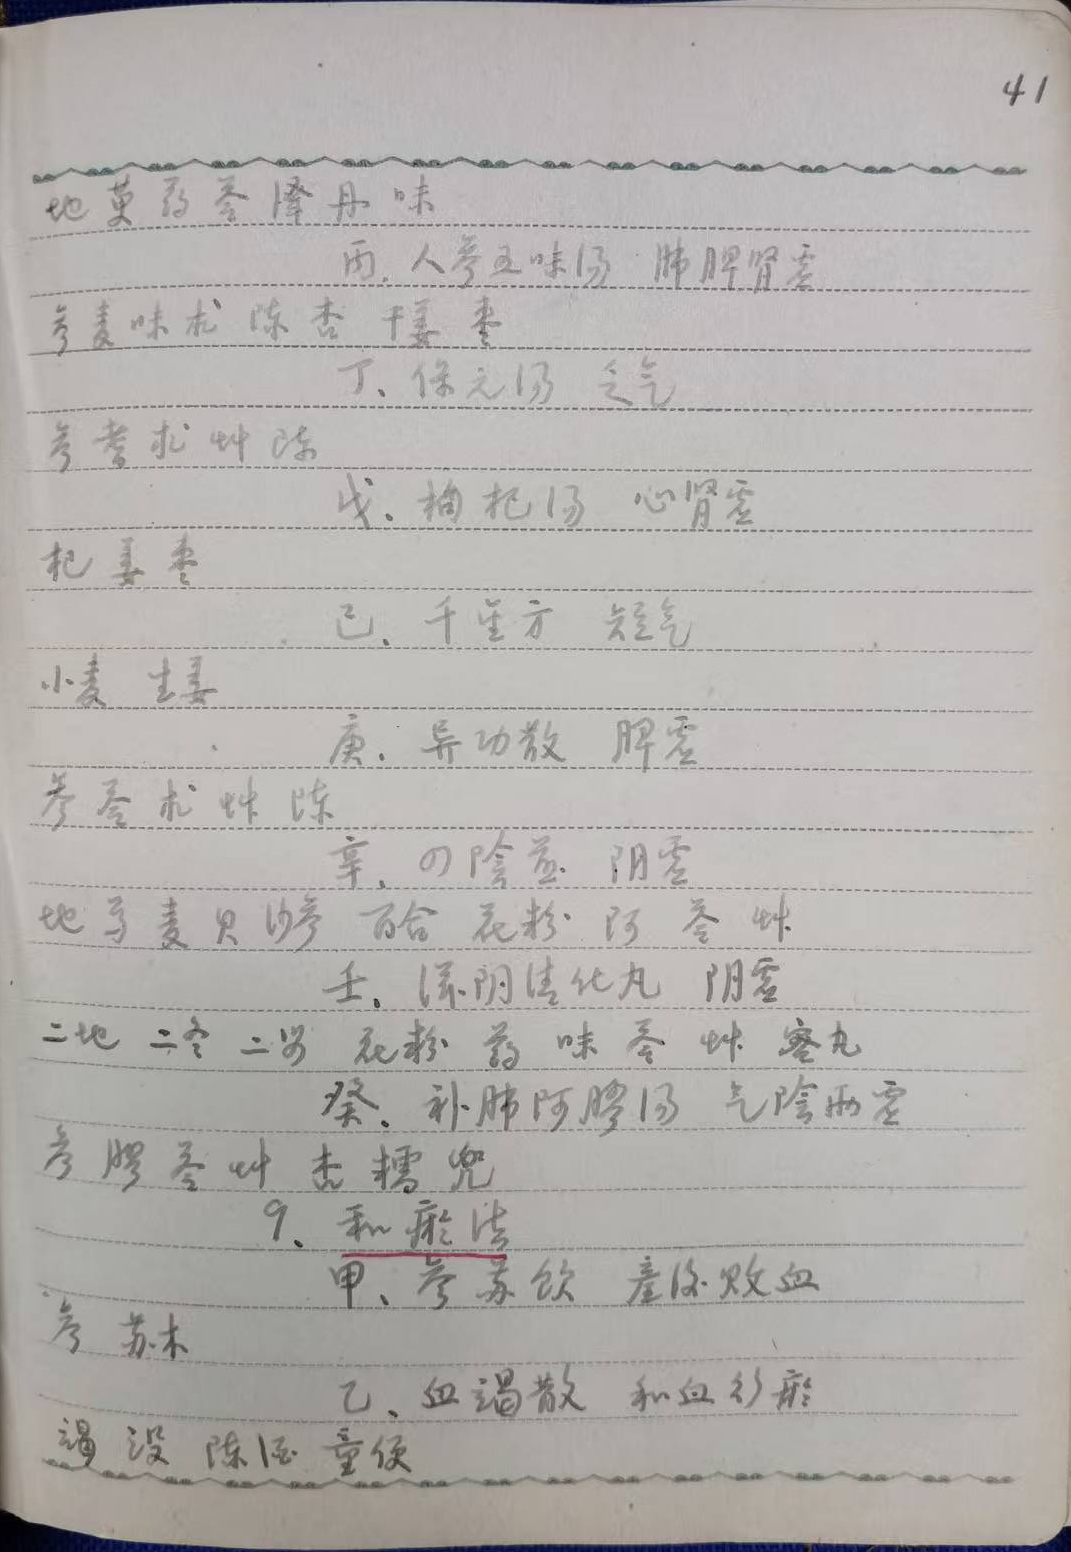 41
地萸药苓泽丹味
丙、人参五味汤 肺脾肾虚
参麦味术陈杏干姜枣
丁、保元汤 乏气
参耆术艸陈
戊、枸杞汤 心肾虚
杞姜枣
己、千金方 短气
小麦 生姜
庚、异功散 脾虚
参苓术艸陈
辛、四陰煎 阴虚
地芍麦贝沙参 百合 花粉 阿 苓 艸
壬、滋阴清化丸 阴虚
二地 二冬 二母 花粉 药 味 苓 艸 蜜丸
癸、补肺阿膠汤 气陰两虚
参膠苓艸杏糯兜
9、和瘀法
甲、参苏饮 産後败血
参 苏木
乙、血竭散 和血行瘀
竭 没 陈酒 童便